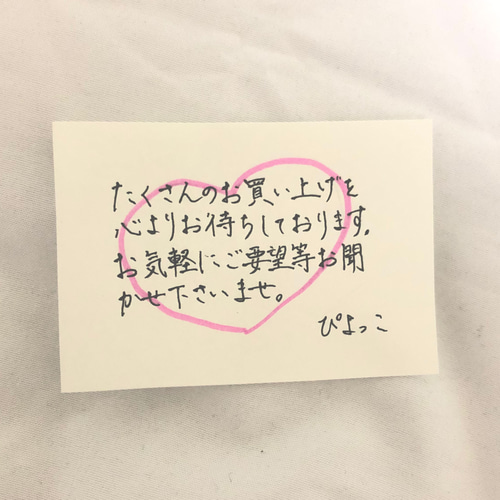 たくさんのお買い上げを
心よりお待ちしております。
お気軽にご要望等お聞
かせ下さいませ。
ぴよっこ